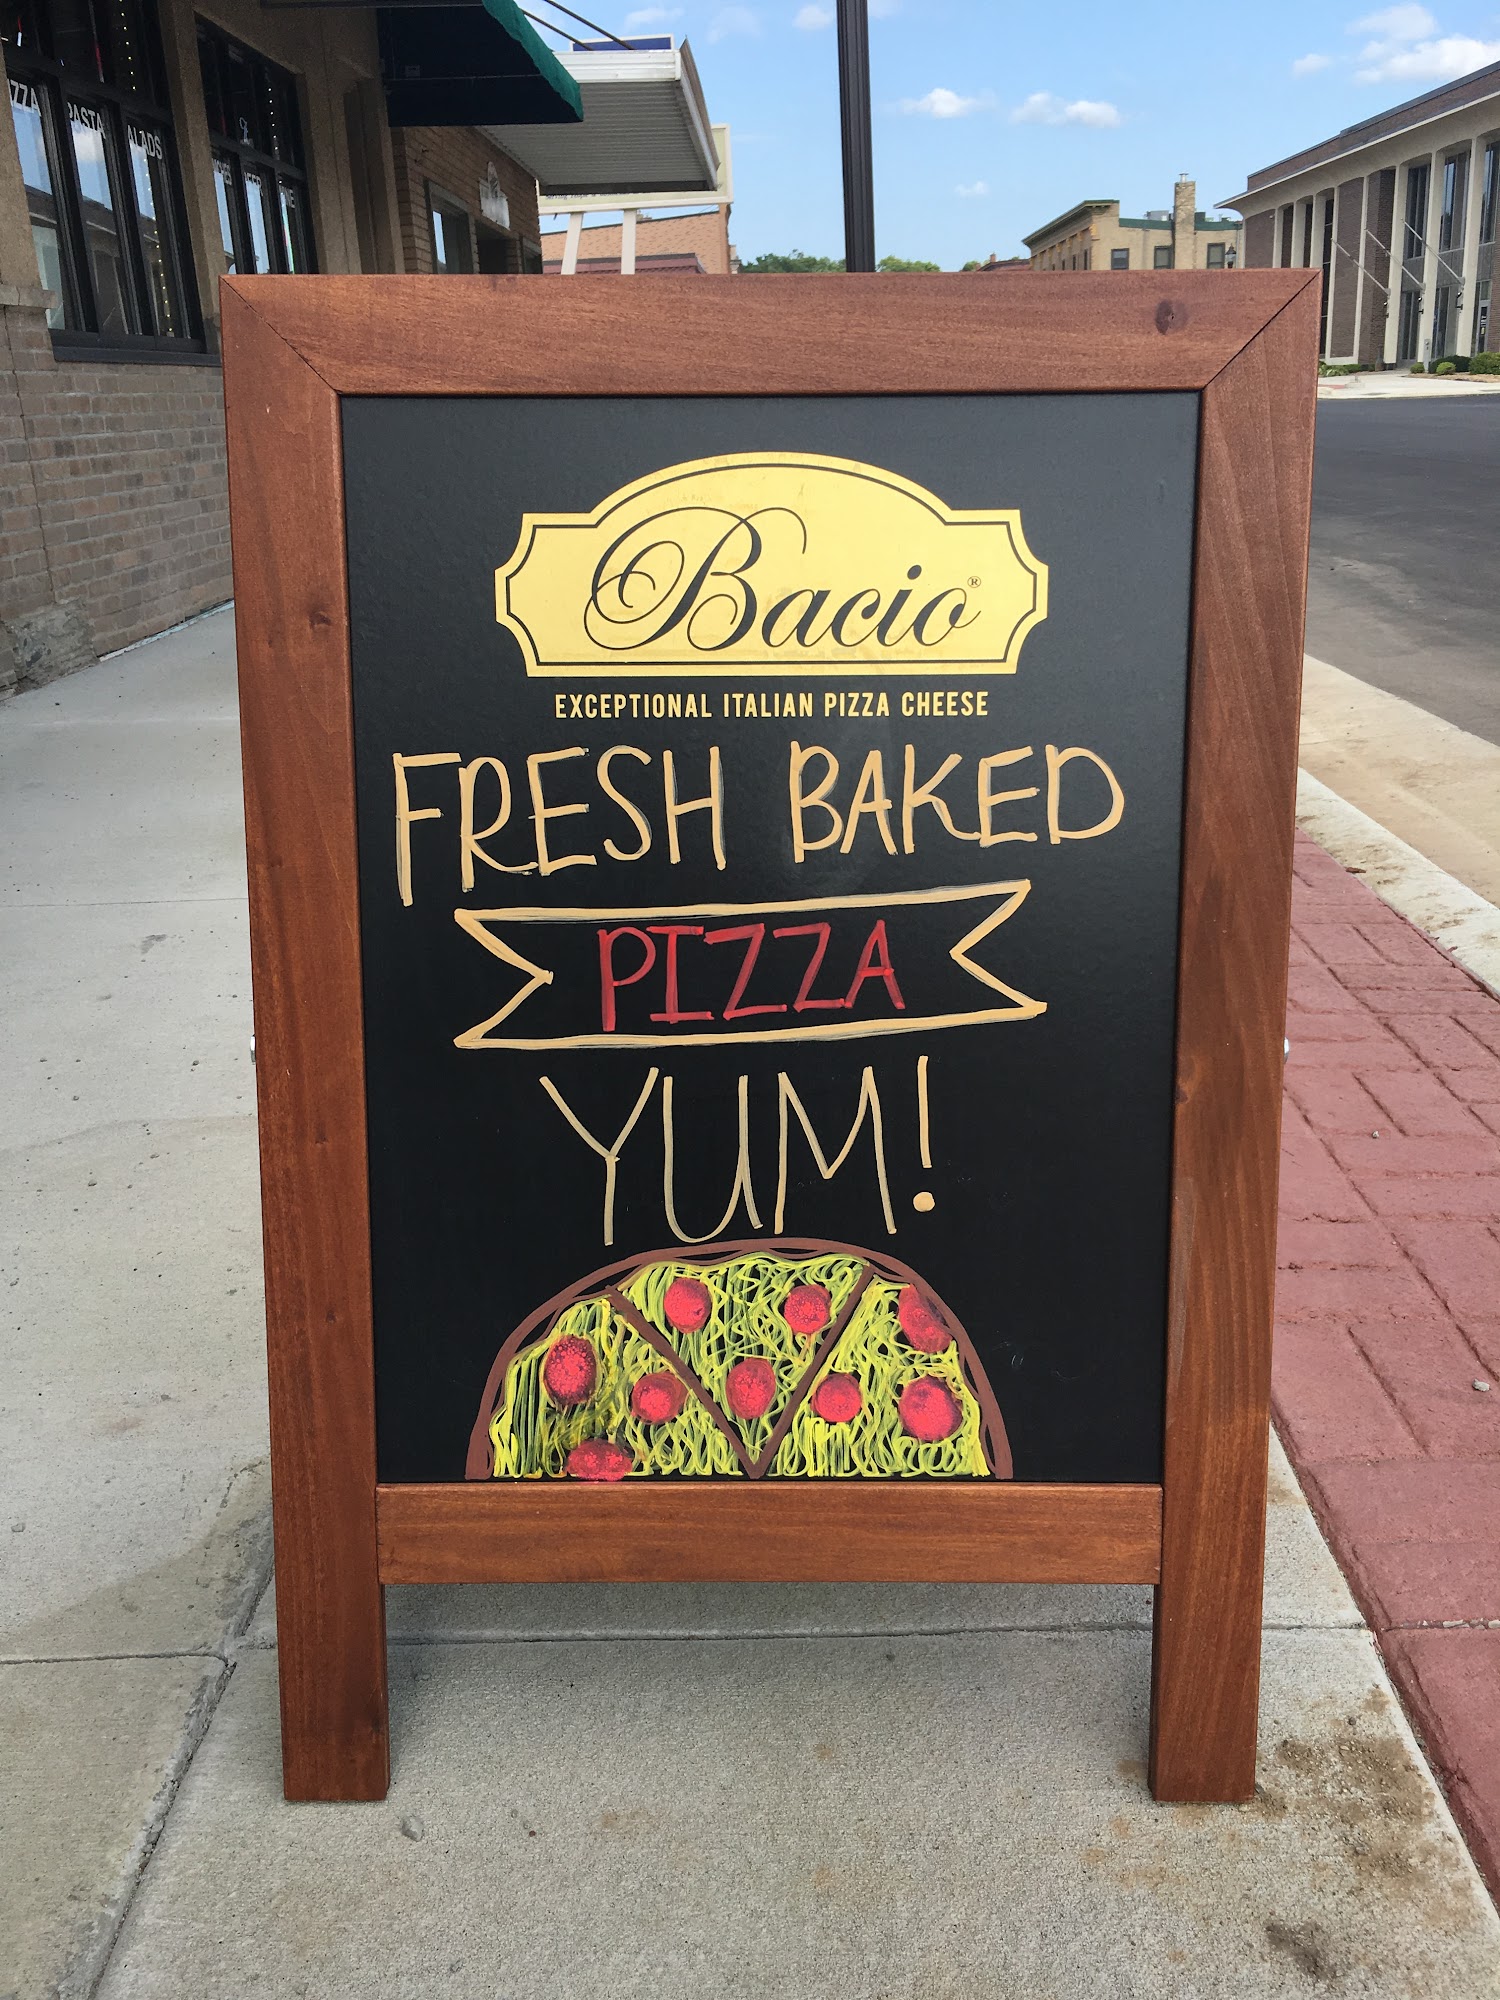 PASTA
Bacio®
EXCEPTIONAL ITALIAN PIZZA CHEESE
FRESH BAKED
PIZZA
YUM!